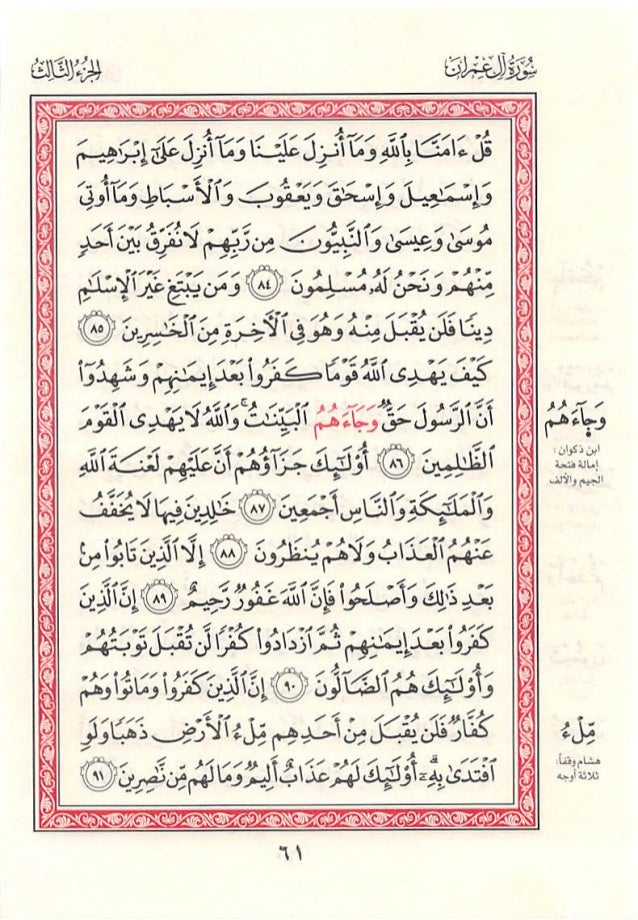 سُورَةُ آلِ عِمْرَان
الجُزءُ الثَّالِثُ
قُلْ ءَامَنَّا بِٱللَّهِ وَمَآ أُنزِلَ عَلَيْنَا وَمَآ أُنزِلَ عَلَىٰٓ إِبْرَٰهِيمَ
وَإِسْمَٰعِيلَ وَإِسْحَٰقَ وَيَعْقُوبَ وَٱلْأَسْبَاطِ وَمَآ أُوتِيَ
مُوسَىٰ وَعِيسَىٰ وَٱلنَّبِيُّونَ مِن رَّبِّهِمْ لَا نُفَرِّقُ بَيْنَ أَحَدٍ
مِّنْهُمْ وَنَحْنُ لَهُۥ مُسْلِمُونَ ٨٤ وَمَن يَبْتَغِ غَيْرَ ٱلْإِسْلَٰمِ
دِينًا فَلَن يُقْبَلَ مِنْهُ وَهُوَ فِي ٱلْأٓخِرَةِ مِنَ ٱلْخَٰسِرِينَ ٨٥
كَيْفَ يَهْدِي ٱللَّهُ قَوْمًا كَفَرُوا۟ بَعْدَ إِيمَٰنِهِمْ وَشَهِدُوٓا۟
أَنَّ ٱلرَّسُولَ حَقٌّ وَجَآءَهُمُ ٱلْبَيِّنَٰتُ ۚ وَٱللَّهُ لَا يَهْدِي ٱلْقَوْمَ
ٱلظَّٰلِمِينَ ٨٦ أُو۟لَٰٓئِكَ جَزَآؤُهُمْ أَنَّ عَلَيْهِمْ لَعْنَةَ ٱللَّهِ
وَٱلْمَلَٰٓئِكَةِ وَٱلنَّاسِ أَجْمَعِينَ ٨٧ خَٰلِدِينَ فِيهَا لَا يُخَفَّفُ
عَنْهُمُ ٱلْعَذَابُ وَلَا هُمْ يُنظَرُونَ ٨٨ إِلَّا ٱلَّذِينَ تَابُوا۟ مِنۢ
بَعْدِ ذَٰلِكَ وَأَصْلَحُوا۟ فَإِنَّ ٱللَّهَ غَفُورٌ رَّحِيمٌ ٨٩ إِنَّ ٱلَّذِينَ
كَفَرُوا۟ بَعْدَ إِيمَٰنِهِمْ ثُمَّ ٱزْدَادُوا۟ كُفْرًا لَّن تُقْبَلَ تَوْبَتُهُمْ
وَأُو۟لَٰٓئِكَ هُمُ ٱلضَّآلُّونَ ٩٠ إِنَّ ٱلَّذِينَ كَفَرُوا۟ وَمَاتُوا۟ وَهُمْ
كُفَّارٌ فَلَن يُقْبَلَ مِنْ أَحَدِهِم مِّلْءُ ٱلْأَرْضِ ذَهَبًا وَلَوِ
ٱفْتَدَىٰ بِهِۦٓ ۗ أُو۟لَٰٓئِكَ لَهُمْ عَذَابٌ أَلِيمٌ وَمَا لَهُم مِّن نَّٰصِرِينَ ٩١
وَجَآءَهُمُ
ابن ذكوان:
إمالة فتحة
الجيم والألف
مِّلْءُ
هشام وقفاً:
ثلاثة أوجه
٦١